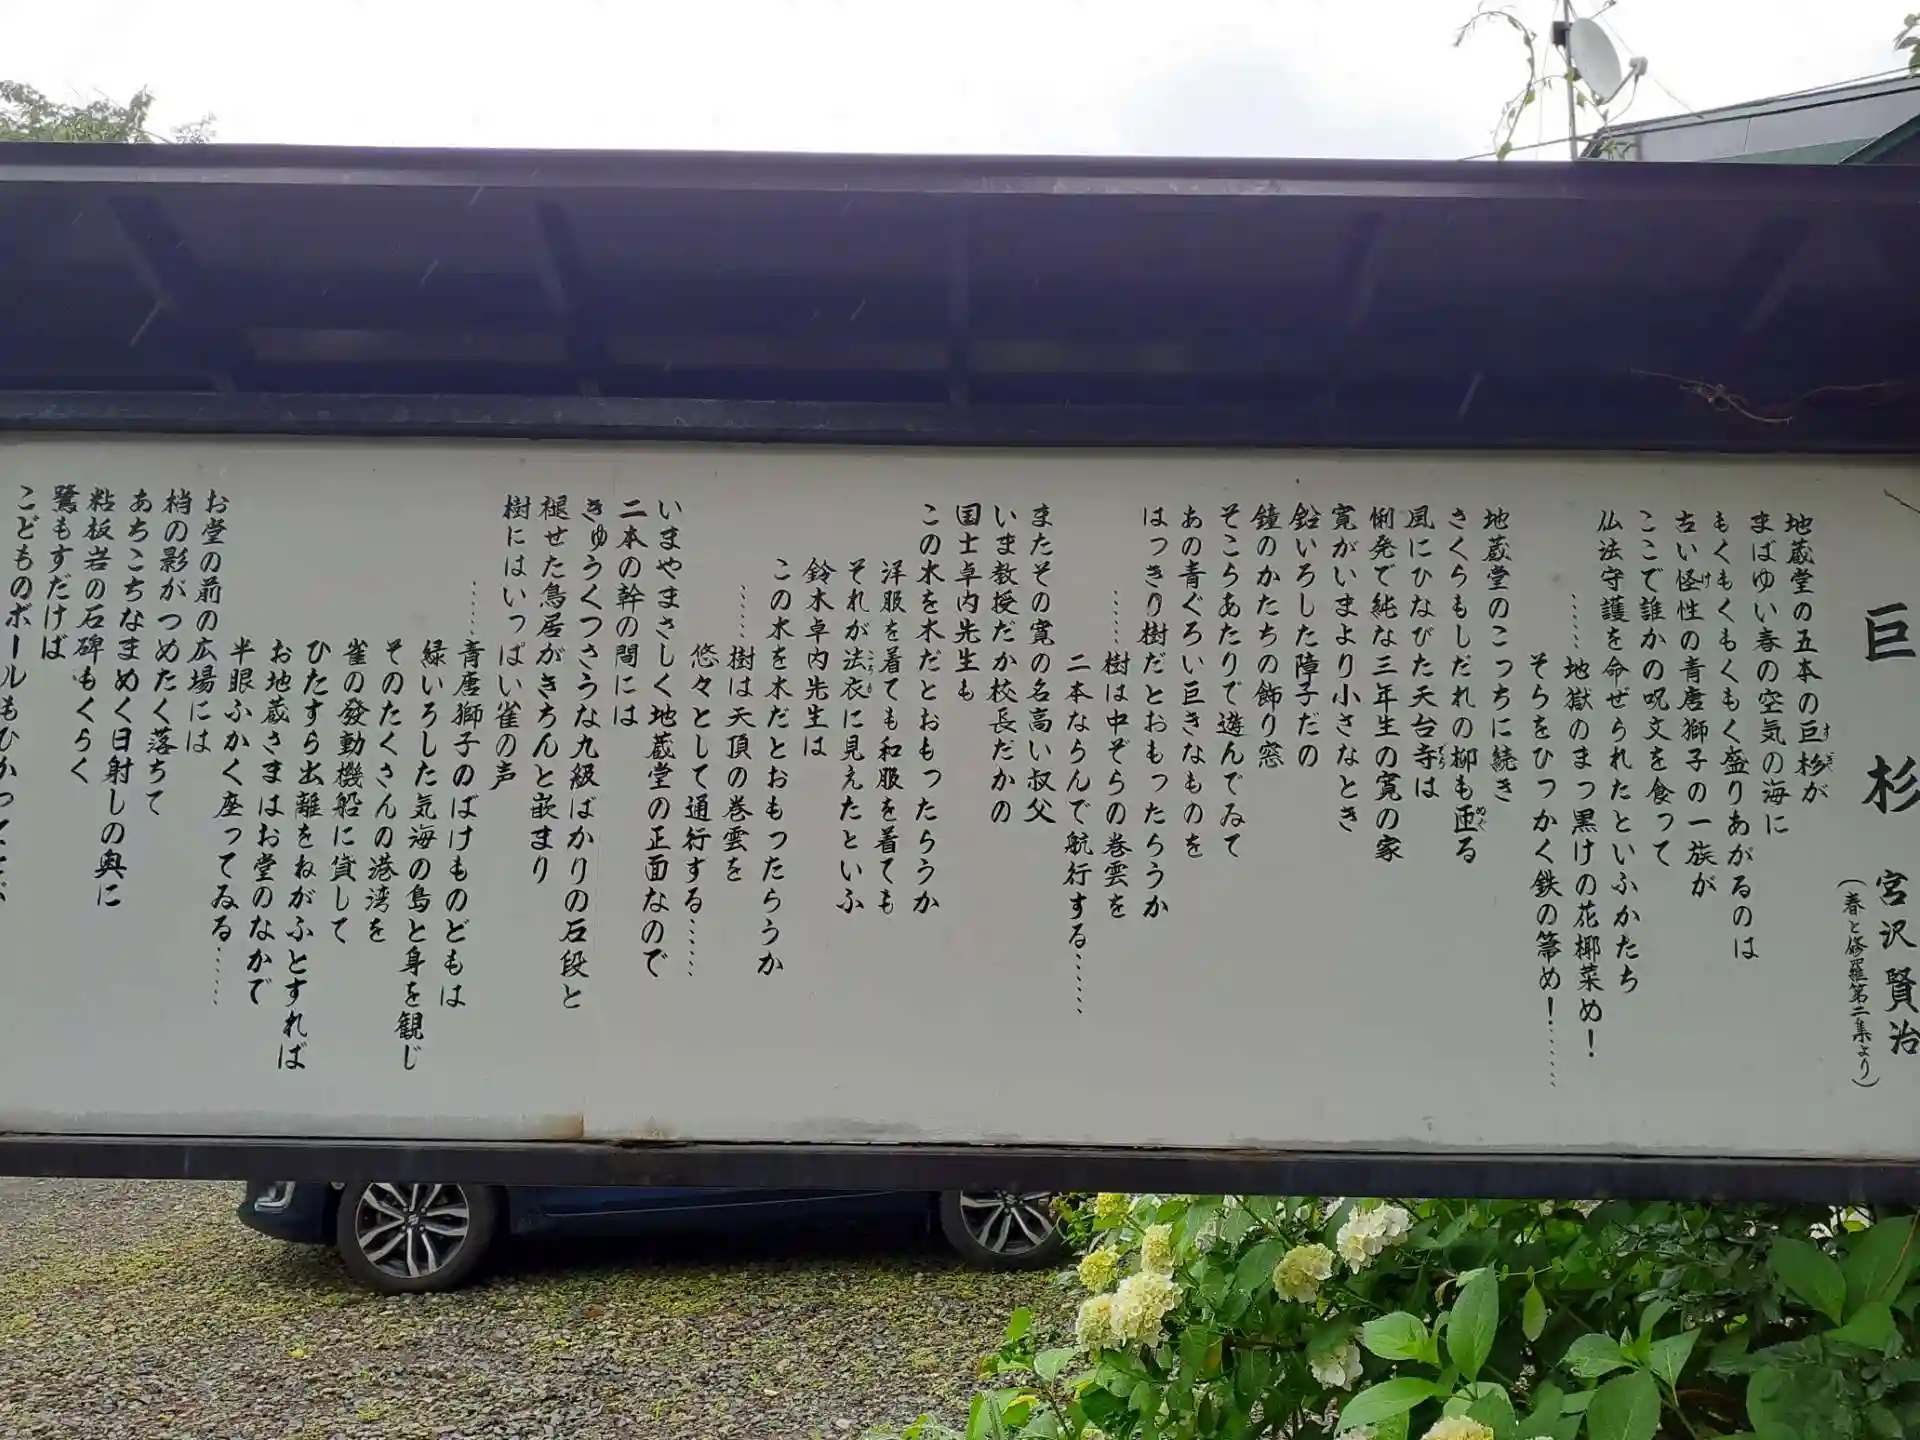 巨杉 宮沢賢治
(春と修羅第二集より)
地蔵堂の五本の巨杉が
すぎ
まばゆい春の空気の海に
もくもくもくもく盛りあがるのは
古い怪性の青唐獅子の一族が
け
ここで誰かの呪文を食って
仏法守護を命ぜられたといふかたち
……地獄のまっ黒けの花椰菜め!
そらをひっかく鉄の箒め!……
地蔵堂のこっちに続き
さくらもしだれの柳も匝る
めぐ
風にひなびた天台寺は
でら
悧発で純な三年生の寛の家
寛がいまより小さなとき
鉛いろした障子だの
鐘のかたちの飾り窓
そこらあたりで遊んでゐて
あの青ぐろい巨きなものを
はっきり樹だとおもったらうか
……樹は中ぞらの巻雲を
二本ならんで航行する……
またその寛の名高い叔父
いま教授だか校長だかの
国士卓内先生も
この木を木だとおもったらうか
洋服を着ても和服を着ても
それが法衣に見えたといふ
ころも
鈴木卓内先生は
この木を木だとおもったらうか
……樹は天頂の巻雲を
悠々として通行する……
いまやまさしく地蔵堂の正面なので
二本の幹の間には
きゅうくつさうな九級ばかりの石段と
褪せた鳥居がきちんと嵌まり
樹にはいっぱい雀の声
……青唐獅子のばけものどもは
緑いろした気海の島と身を観じ
そのたくさんの港湾を
雀の發動機船に貸して
ひたすら出離をねがふとすれば
お地蔵さまはお堂のなかで
半眼ふかく座ってゐる……
お堂の前の広場には
梢の影がつめたく落ちて
あちこちなまめく日射しの奥に
粘板岩の石碑もくらく
鷺もすだけば
こどものボールもひかってとぶ